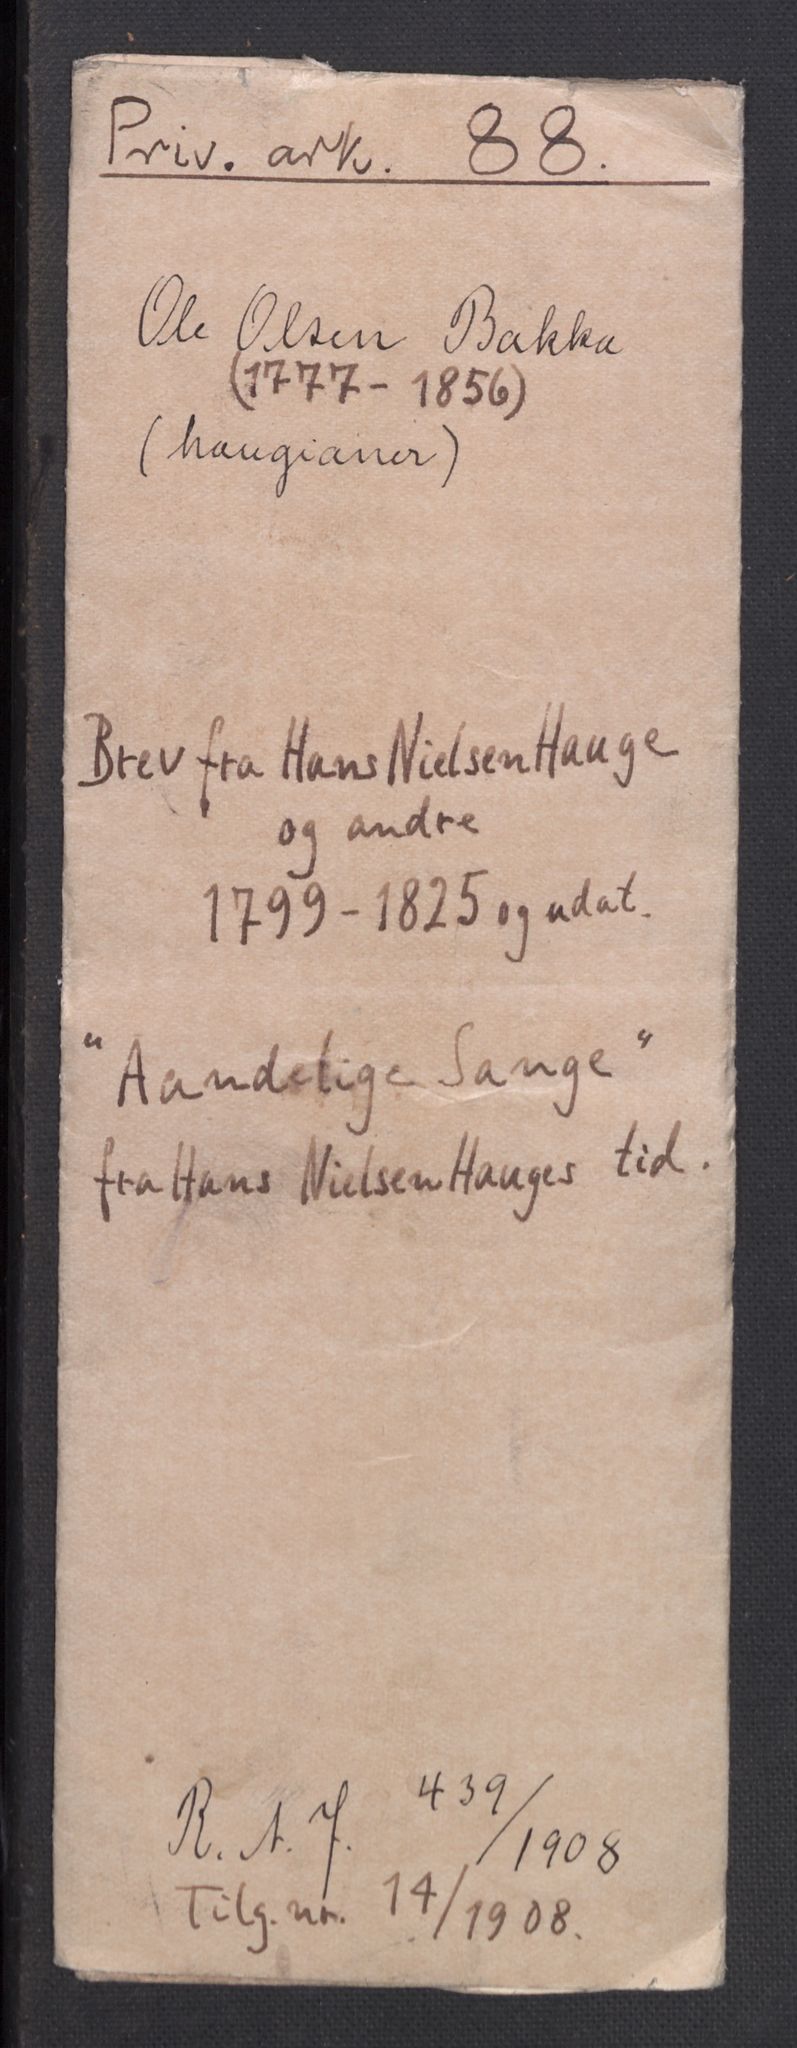 Priv. ark. 88.
Ole Olsen Bakka
(1777 - 1856)
(haugianer)
Brev fra Hans Nielsen Hauge
og andre
1799 - 1825 og udat.
"Aandelige Sange"
fra Hans Nielsen Hauges tid.
R. A. J. 439/1908
Tilg. nr. 14/1908.